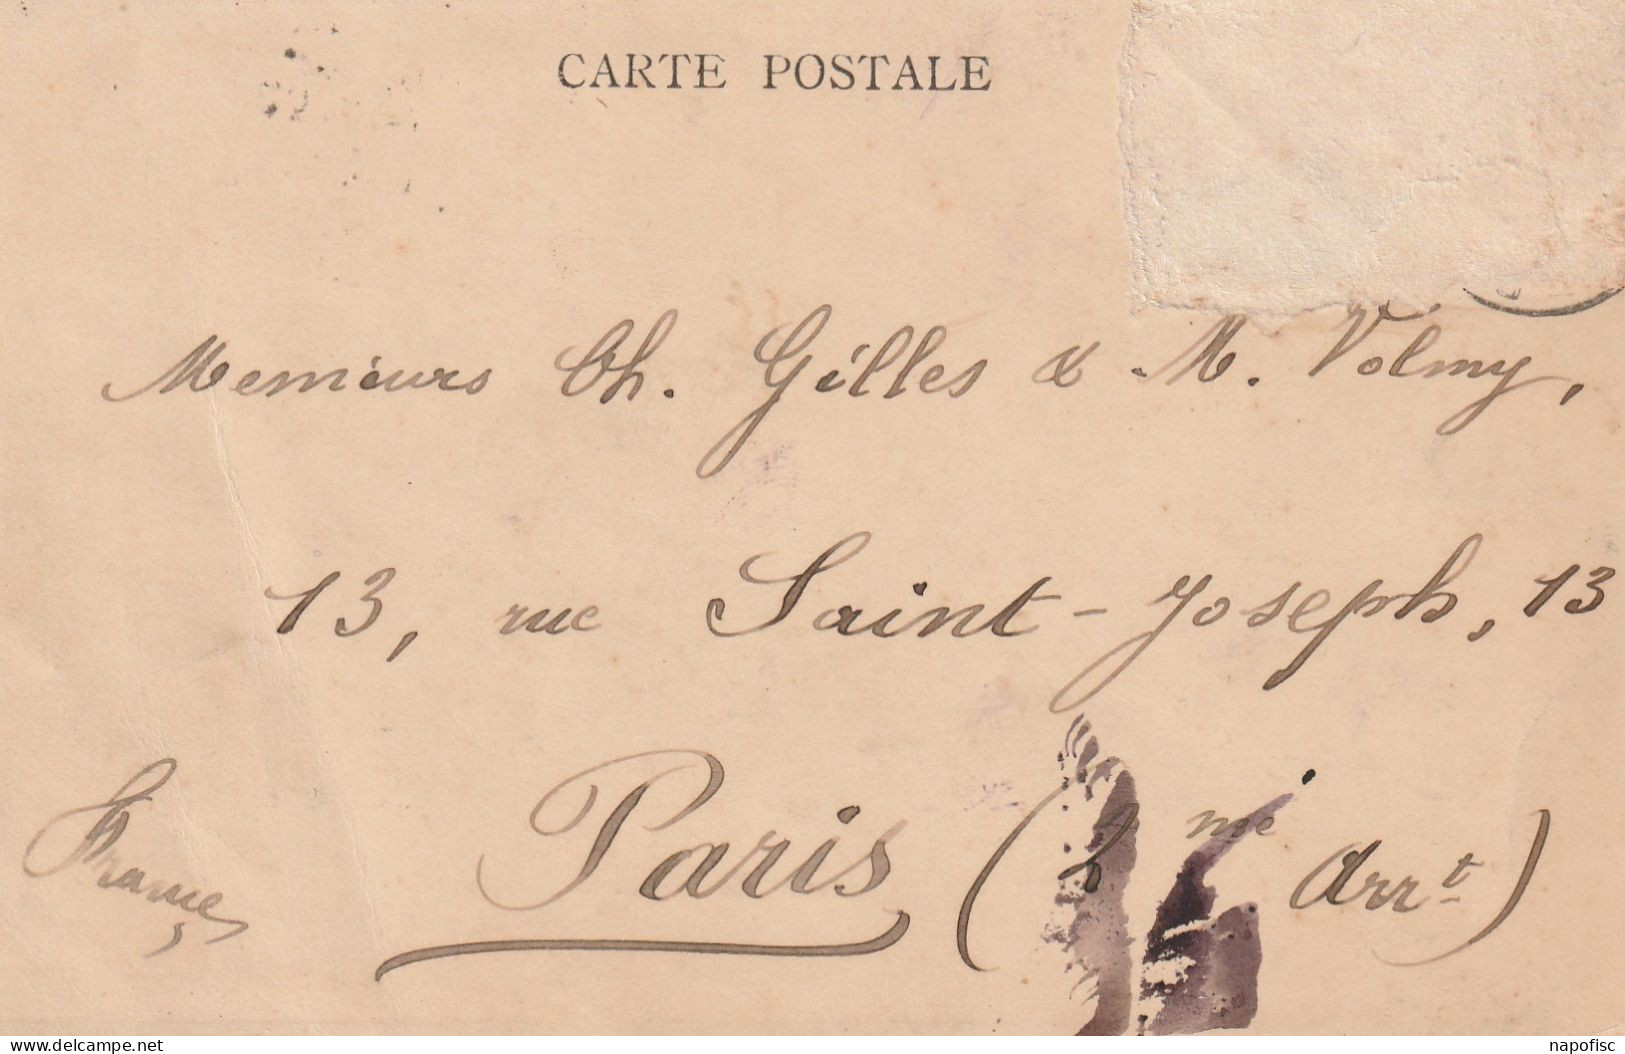 CARTE POSTALE
Messieurs Ch. Gilles & M. Volmy,
13, rue Saint-Joseph, 13
Paris (2me Arrt)
France
delcampe.net
napofisc